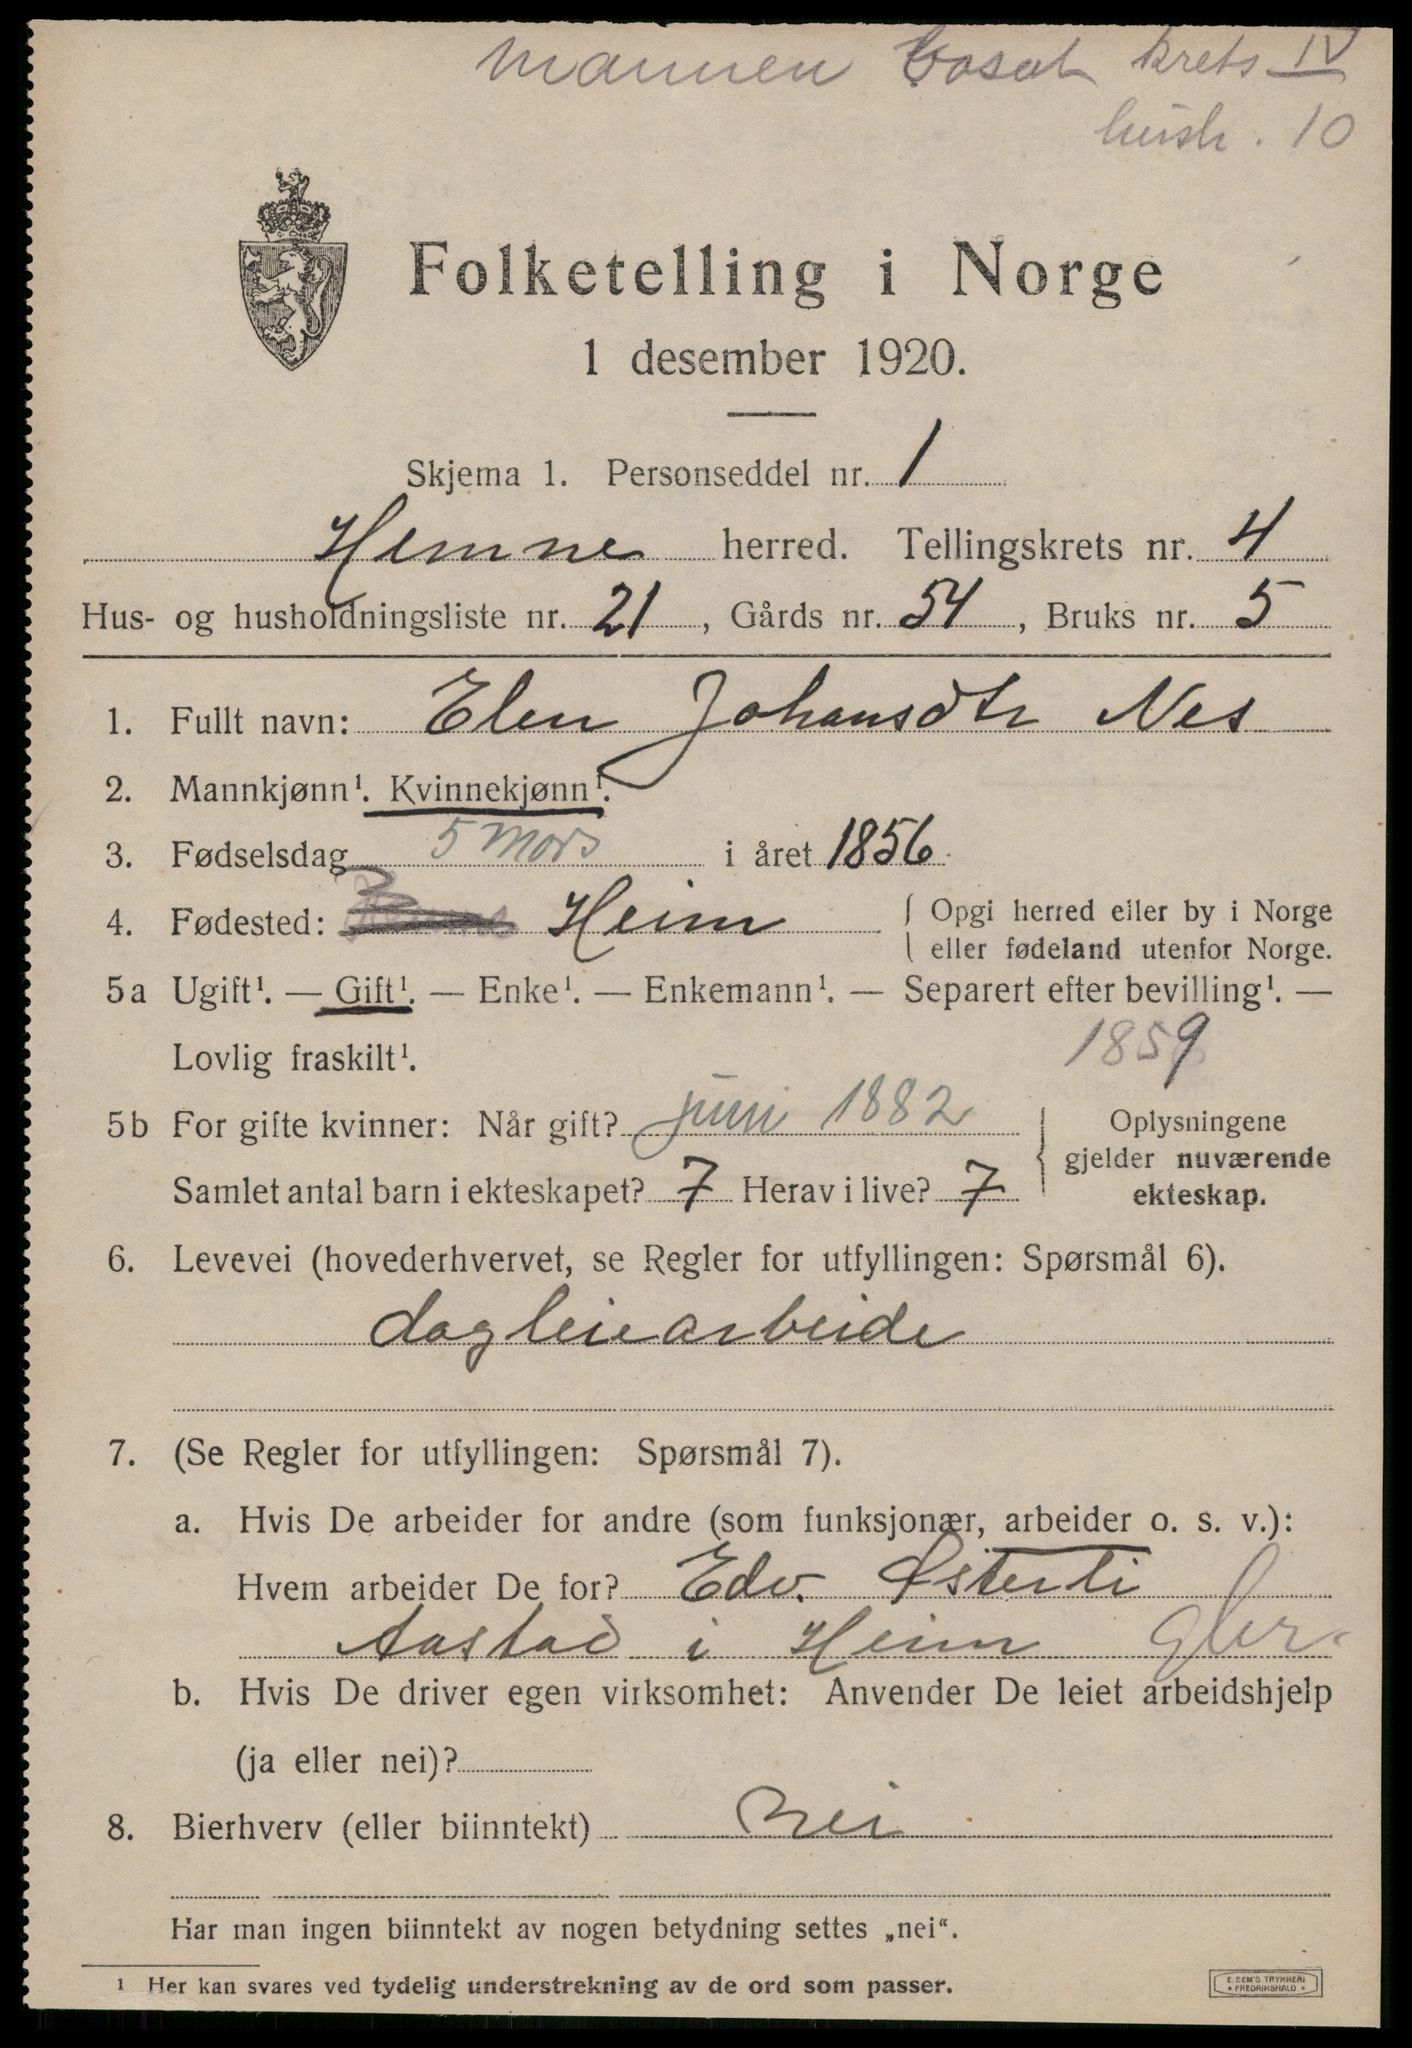 Mannen bosat krets IV
husl. 10
Folketelling i Norge
1 desember 1920.
Skjema 1. Personseddel nr. 1
Hemne herred. Tellingskrets nr. 4
Hus- og husholdningsliste nr. 21, Gårds nr. 54, Bruks nr. 5
1. Fullt navn: Elen Johansdtr Nes
2. Mannkjønn¹. Kvinnekjønn¹.
3. Fødselsdag 5 Mars i året 1856
4. Fødested: Heim { Opgi herred eller by i Norge
eller fødeland utenfor Norge.
5a Ugift¹. — Gift¹. — Enke¹. — Enkemann¹. — Separert efter bevilling¹. —
Lovlig fraskilt¹. 1859
5b For gifte kvinner: Når gift? juni 1882 { Oplysningene
gjelder nuværende
Samlet antal barn i ekteskapet? 7 Herav i live? 7 ekteskap.
6. Levevei (hovederhvervet, se Regler for utfyllingen: Spørsmål 6).
dagleiearbeide
7. (Se Regler for utfyllingen: Spørsmål 7).
a. Hvis De arbeider for andre (som funksjonær, arbeider o. s. v.):
Hvem arbeider De for? Edv. Østerli
Aastad i Heim
b. Hvis De driver egen virksomhet: Anvender De leiet arbeidshjelp
(ja eller nei)?
8. Bierhverv (eller biinntekt) Nei
Har man ingen biinntekt av nogen betydning settes „nei“.
¹ Her kan svares ved tydelig understrekning av de ord som passer.
E. SEM'S TRYKKERI
* FREDRIKSHALD *